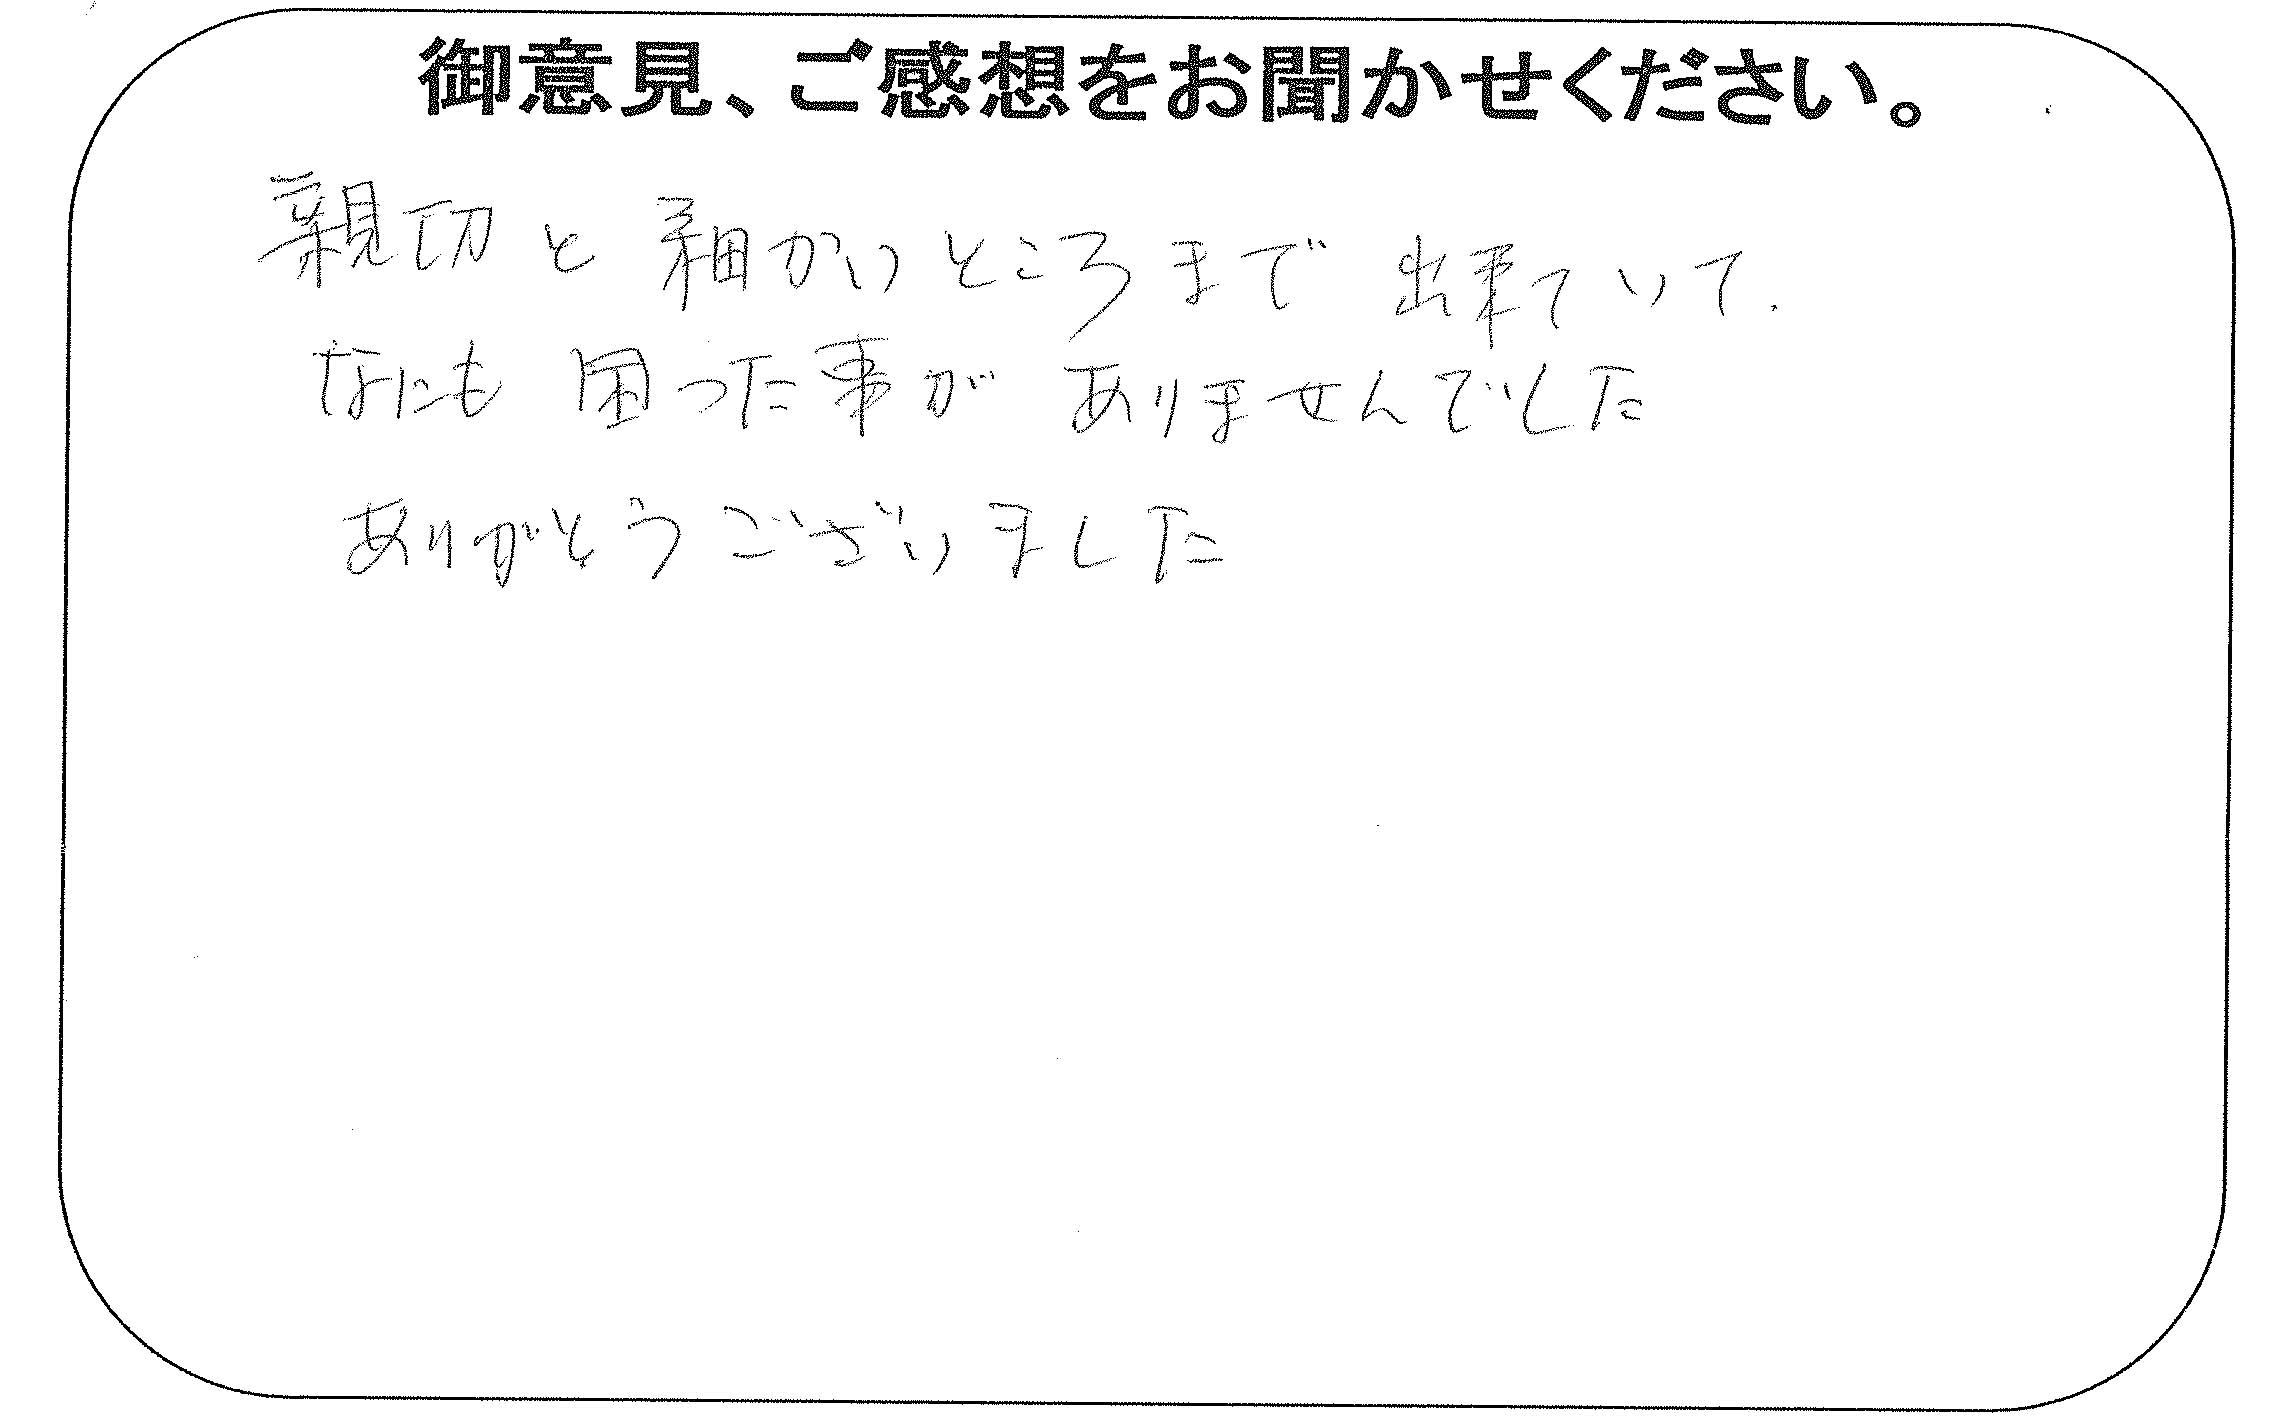 御意見、ご感想をお聞かせください。
親切と細かいところまで出来ていて.
なにも困った事がありませんでした
ありがとうございました